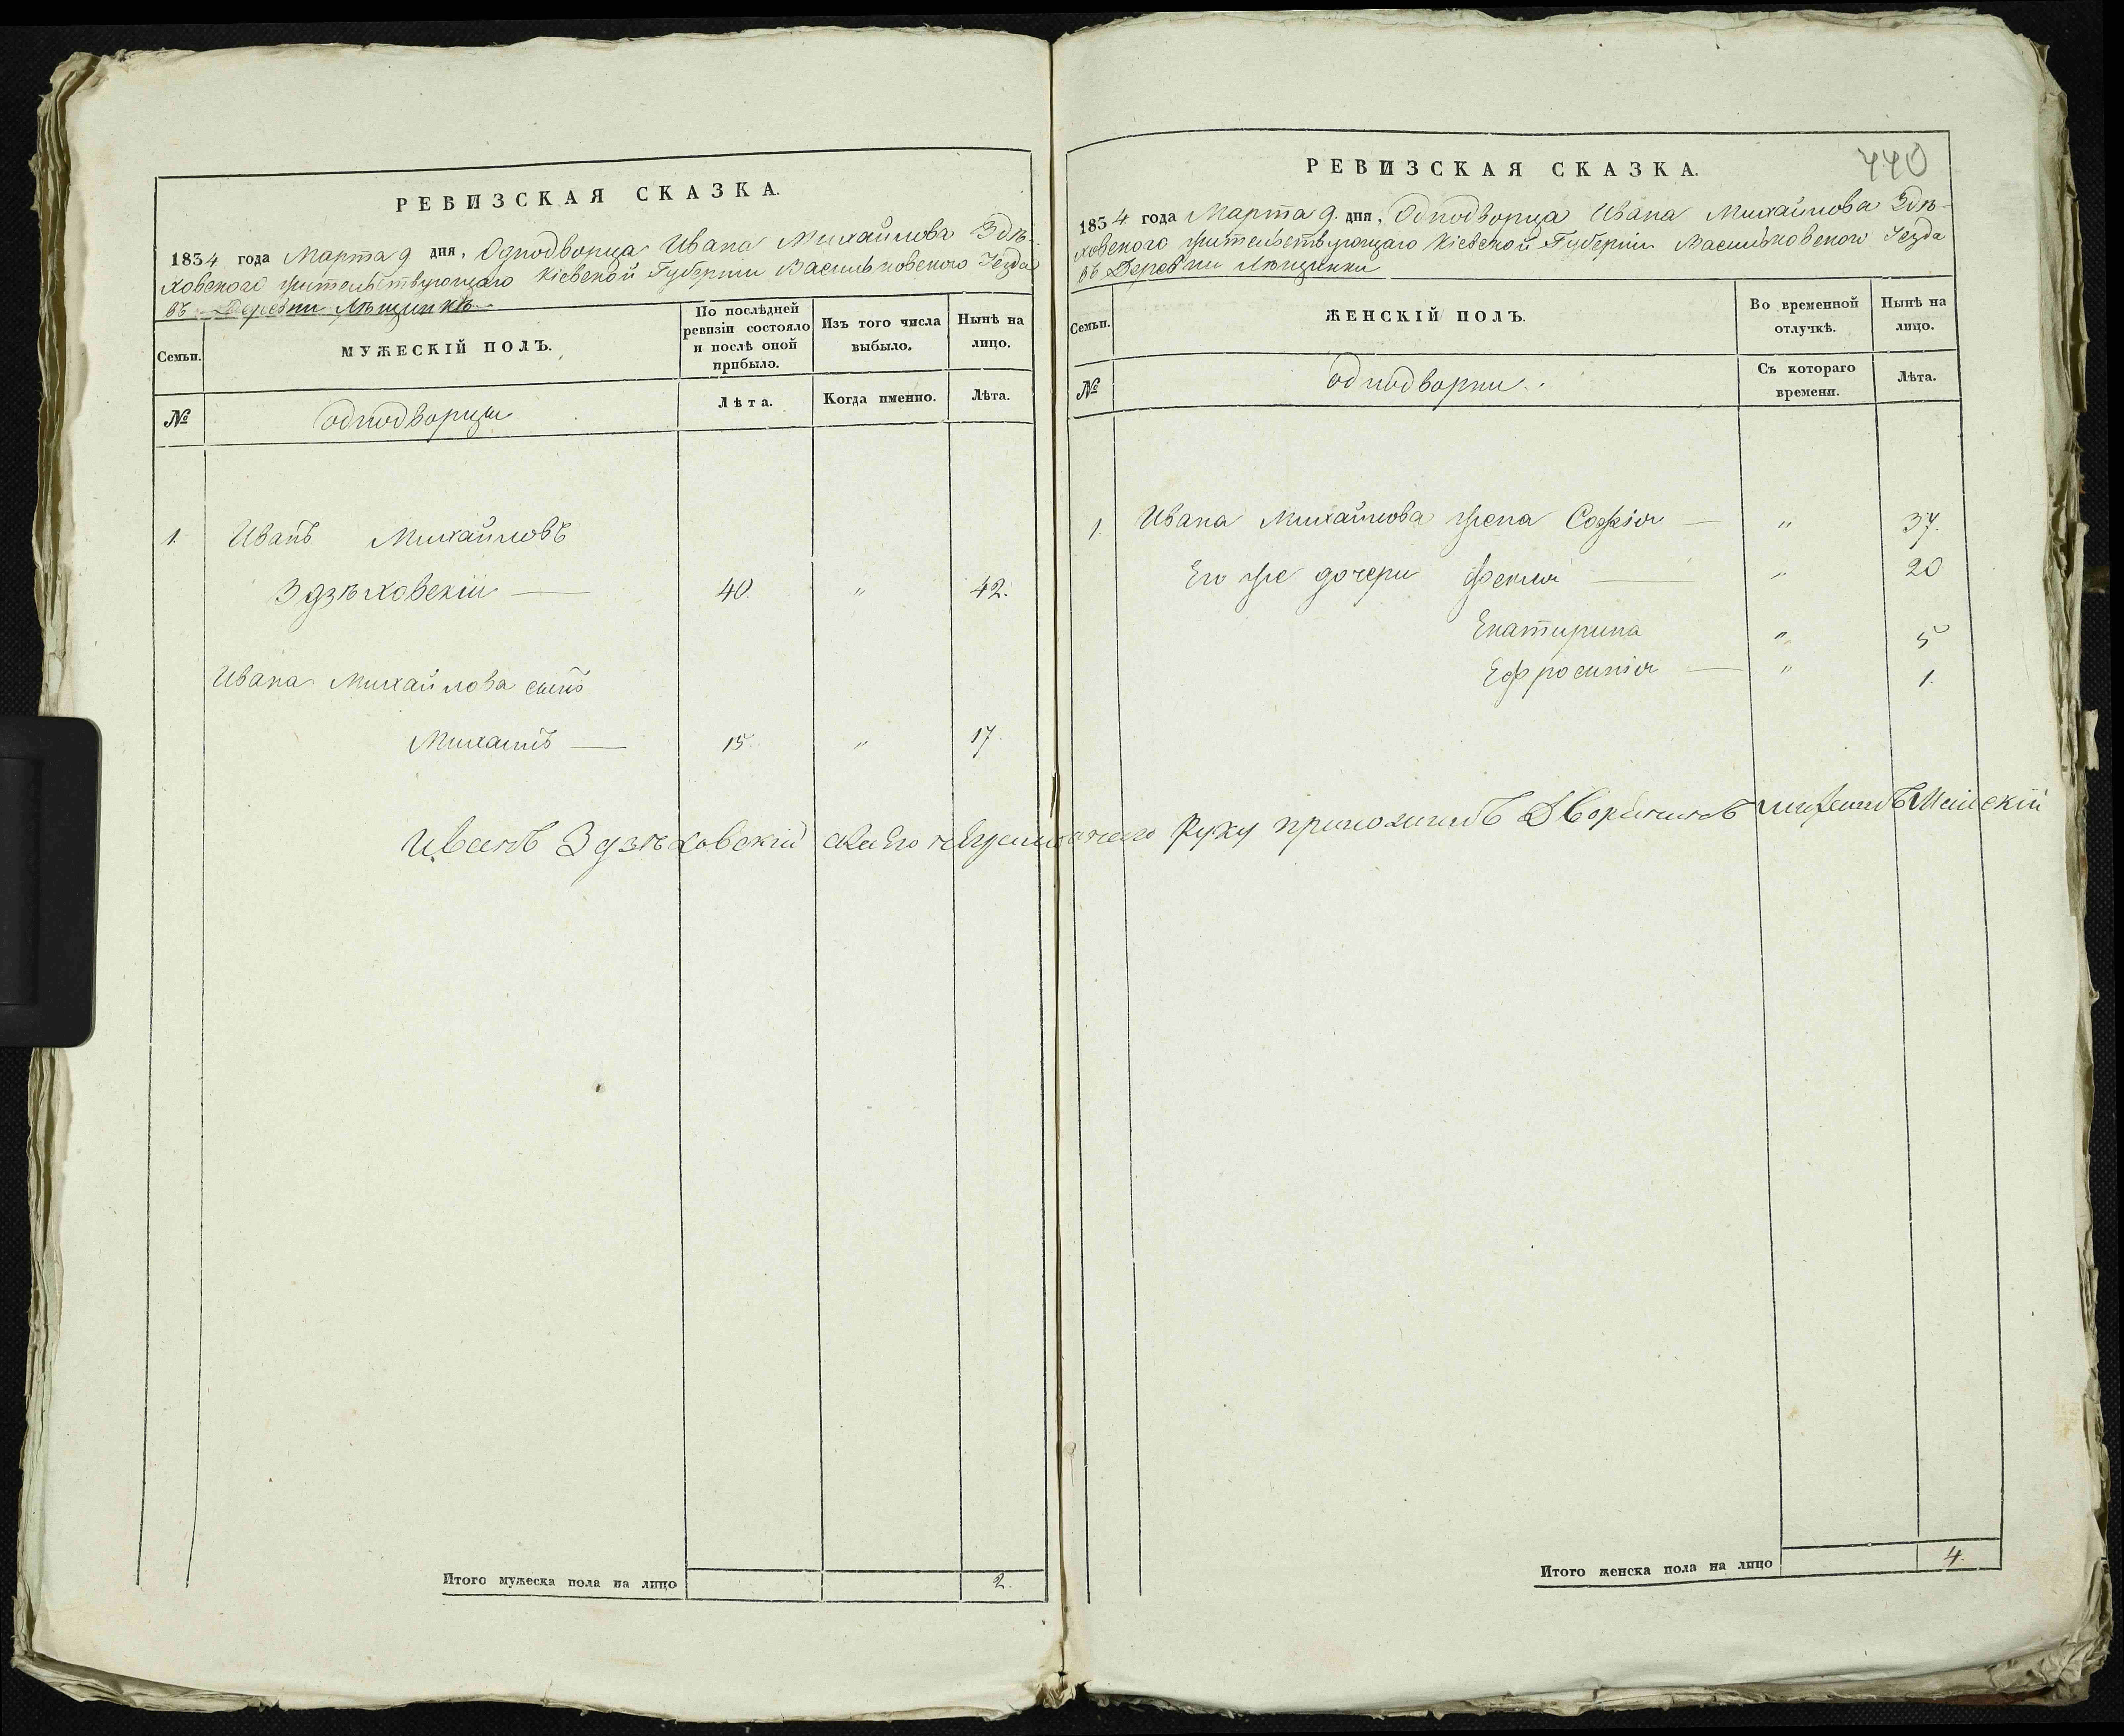 РЕВИЗСКАЯ СКАЗКА.
1834 года Марта 9 дня, Однодворца Ивана Михайлова Здѣ-
ховского жительствующаго Кіевской Губерніи Васильковского Уезда
въ Деревни Лѣщинкѣ
Семьи.
МУЖЕСКІЙ ПОЛЪ.
По послѣдней
ревизіи состояло
и послѣ оной
прибыло.
Изъ того числа
выбыло.
Нынѣ на
лицо.
№
однодворцы
Лѣта.
Когда именно.
Лѣта.
1. Иванъ Михайловъ
Здзѣховскій — 40. " 42.
Ивана Михайлова сынъ
Михаилъ — 15. " 17.
Иванъ Здзѣховскій а за Его неграмотнаго Руку приложилъ Дворянинъ
Итого мужеска пола на лицо 2.
440
РЕВИЗСКАЯ СКАЗКА.
1834 года Марта 9. дня, Однодворца Ивана Михайлова Здѣ-
ховского жительствующаго Кіевской Губерніи Васильковского Уезда
въ Деревни Лѣщинки
Семьи.
ЖЕНСКІЙ ПОЛЪ.
Во временной
отлучкѣ.
Нынѣ на
лицо.
№
однодворки
Съ котораго
времени.
Лѣта.
1. Ивана Михайлова жена Софія — " 37.
Его же дочери Фекла — " 20
Екатирина " 5
Ефросинія — " 1.
Итого женска пола на лицо 4.